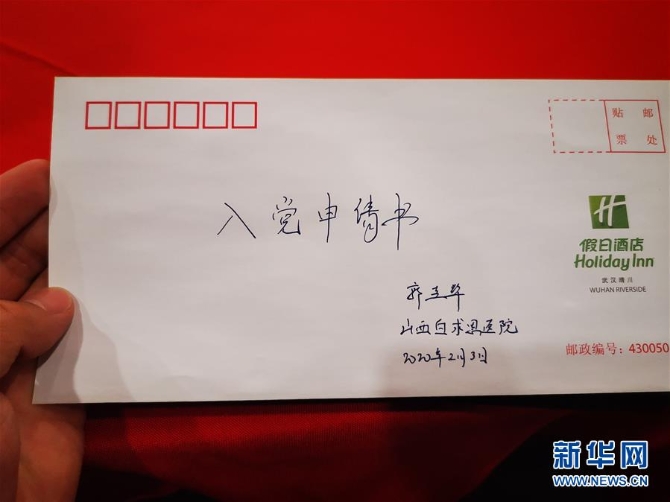 贴 邮
票 处
入党申请书
假日酒店
Holiday Inn
WUHAN RIVERSIDE
山西白求恩医院
2020年2月3日
邮政编号：430050
新华网
WWW.NEWS.CN